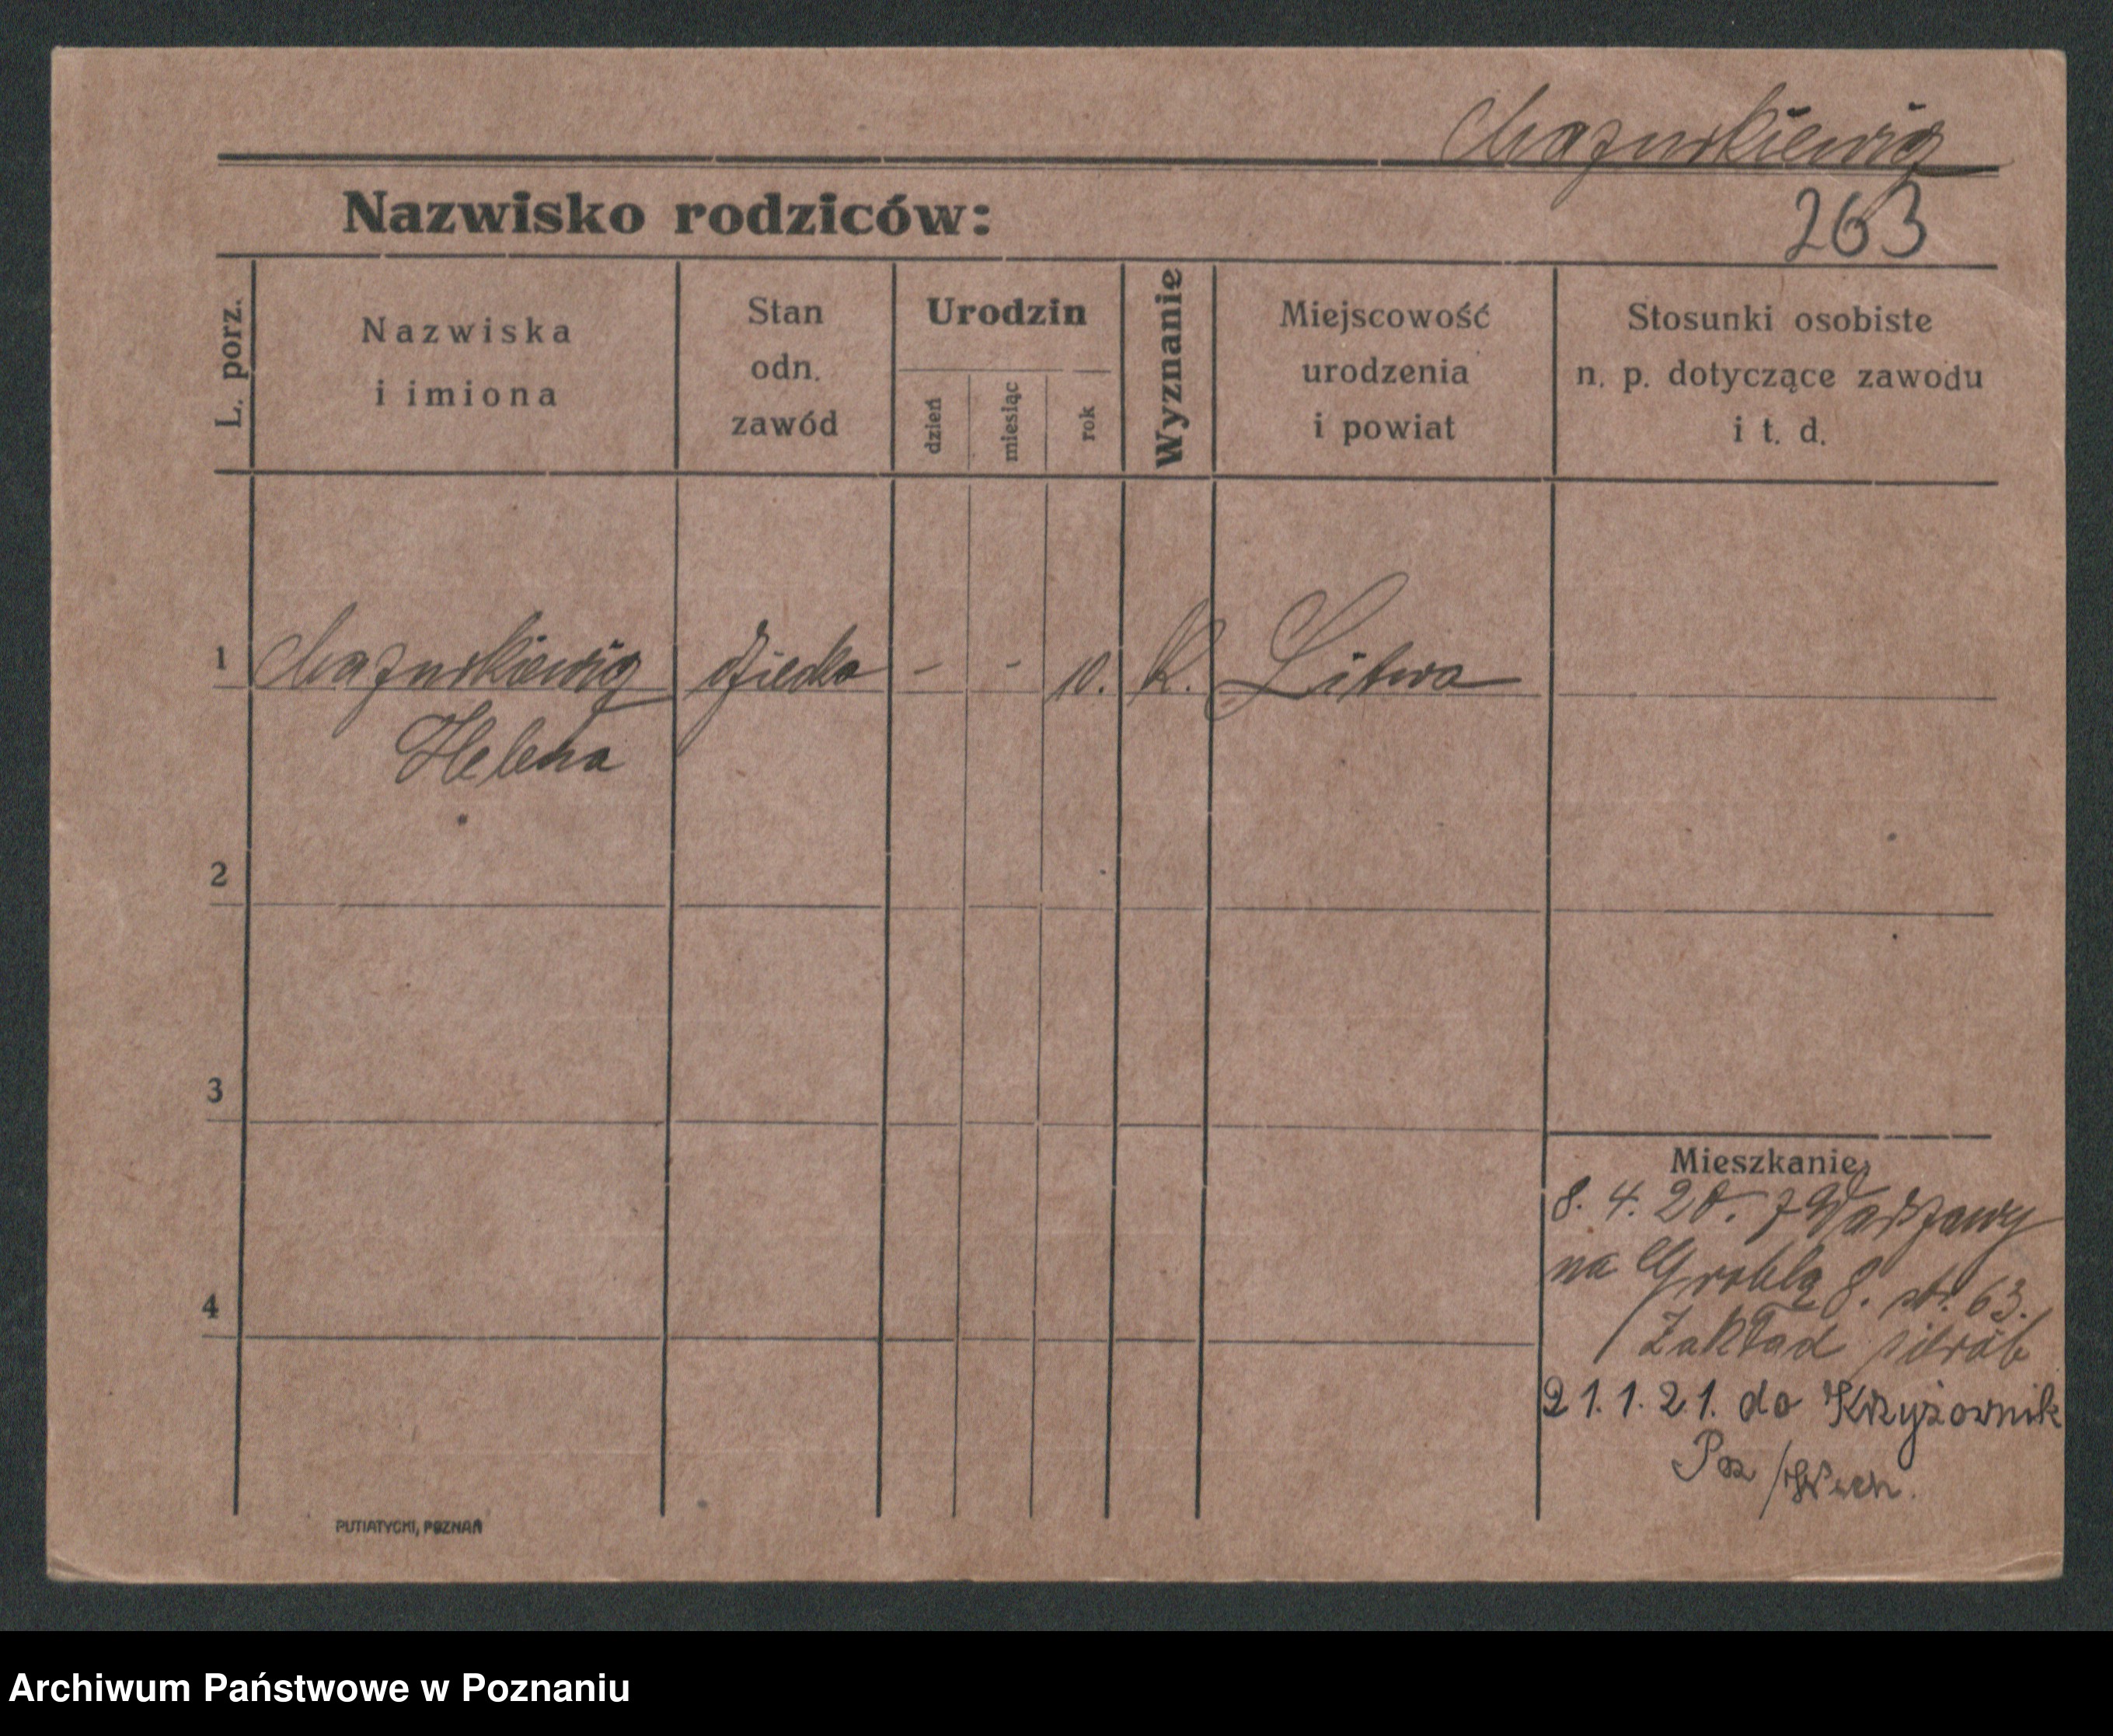 Mazurkiewicz
Nazwisko rodziców:
263
L. porz.
Nazwiska
i imiona
Stan
odn.
zawód
Urodzin
dzień
miesiąc
rok
Wyznanie
Miejscowość
urodzenia
i powiat
Stosunki osobiste
n. p. dotyczące zawodu
i t. d.
1 Mazurkiewicz dziecko - - 10. K. Litwa
Helena
2
3
4
Mieszkanie
8. 4. 20. z Warszawy
na Groblą 8. str. 63.
Zakład sierób
21.1.21. do Krzyżownik
Poz / Wsch.
PUTIATYCKI, POZNAŃ
Archiwum Państwowe w Poznaniu